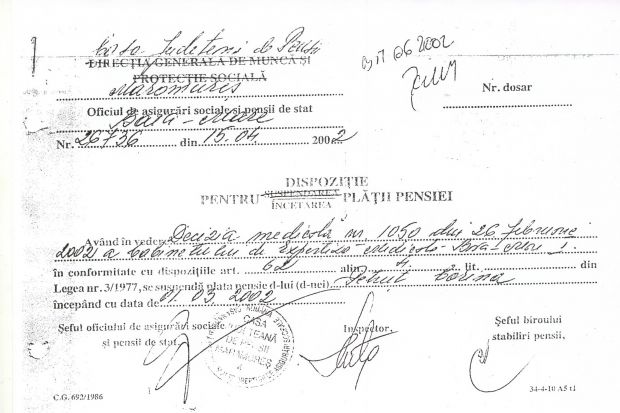 Casa Județeană de Pensii
DIRECȚIA GENERALĂ DE MUNCĂ ȘI
PROTECȚIE SOCIALĂ
Maramureș
Oficiul de asigurări sociale și pensii de stat
Baia-Mare
Nr. 26736 din 15.04. 2002
06 2002
Nr. dosar
DISPOZIȚIE
PENTRU SUSPENDAREA PLĂȚII PENSIEI
ÎNCETAREA
Având în vedere Decizia medicală nr 1050 din 26 februarie
2002 a Cabinetului de Expertiza Medicală Baia-Mare 1.
în conformitate cu dispozițiile art. 62 alin. 4 lit. din
Legea nr. 3/1977, se suspendă plata pensiei d-lui (d-nei) Petruț Corina
începând cu data de 01.03.2002
Șeful oficiului de asigurări sociale
și pensii de stat,
Inspector,
Șeful biroului
stabiliri pensii,
CASA
JUDEȚEANĂ
DE PENSII
MARAMUREȘ
C.G. 692/1986
34-4-10 A5 t1